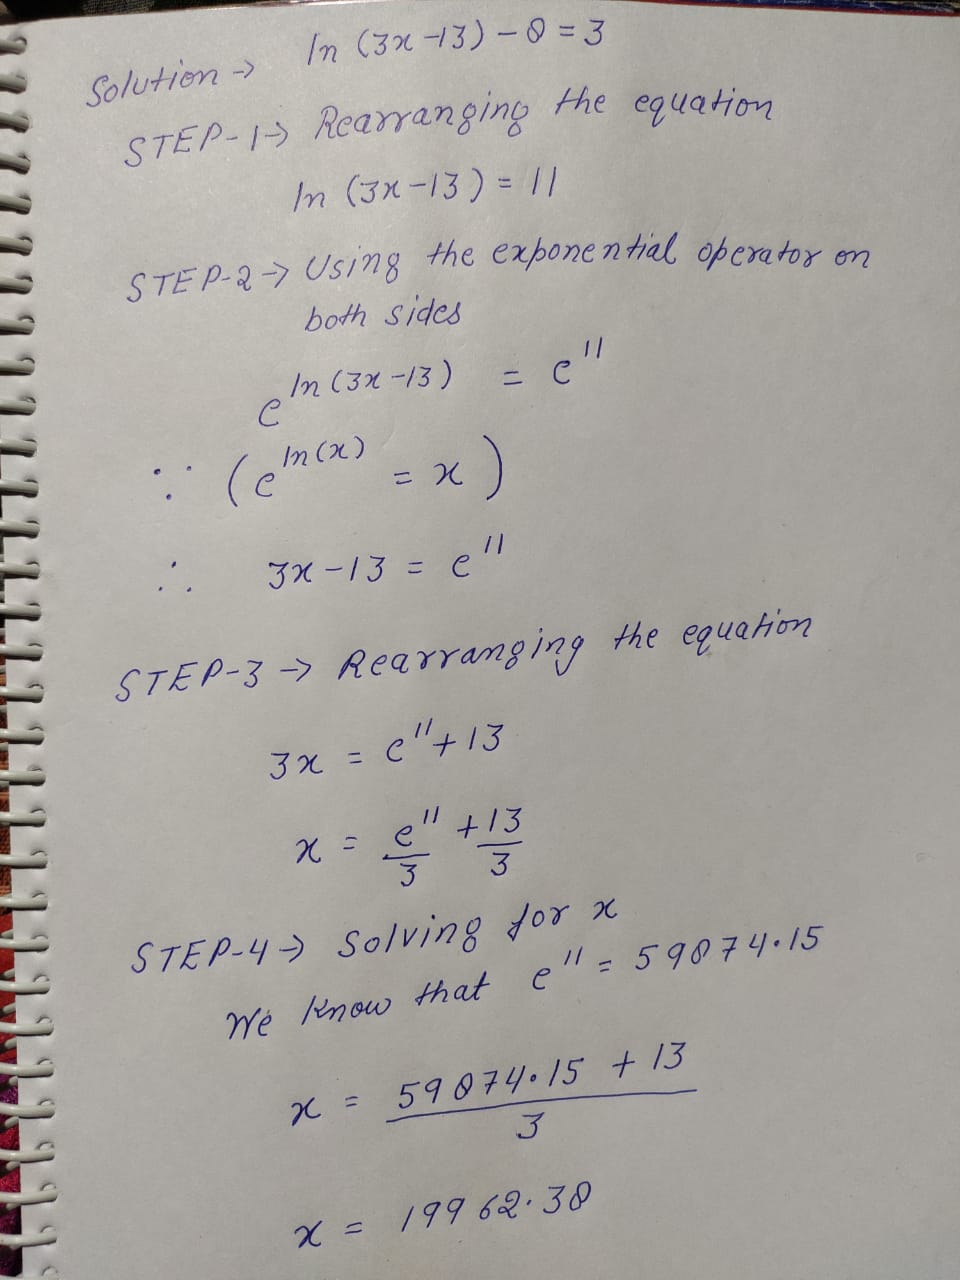 Solution → ln (3x-13) - 8 = 3
STEP-1→ Rearranging the equation
ln (3x-13) = 11
STEP-2→ Using the exponential operator on
both sides
e^ln(3x-13) = e^11
∵ (e^ln(x) = x)
∴ 3x-13 = e^11
STEP-3 → Rearranging the equation
3x = e^11 + 13
x = e^11/3 + 13/3
STEP-4→ Solving for x
We know that e^11 = 59874.15
x = (59874.15 + 13)/3
x = 19962.38